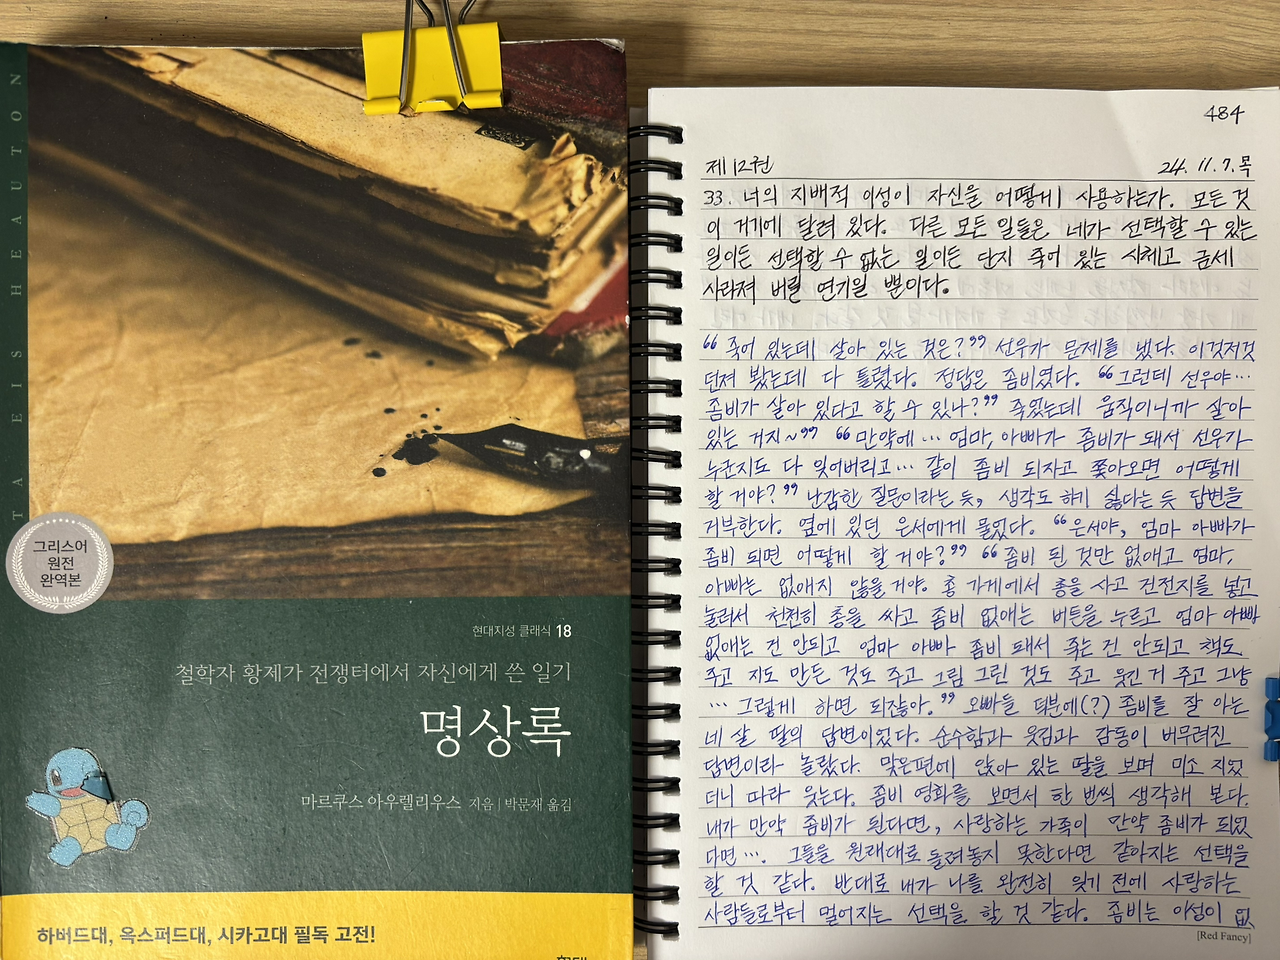 TA EIS HEAUTON
그리스어
원전
완역본
현대지성 클래식 18
철학자 황제가 전쟁터에서 자신에게 쓴 일기
명상록
마르쿠스 아우렐리우스 지음 | 박문재 옮김
하버드대, 옥스퍼드대, 시카고대 필독 고전!
484
제12권 24. 11. 7. 목
33. 너의 지배적 이성이 자신을 어떻게 사용하는가. 모든 것
이 거기에 달려 있다. 다른 모든 일들은 네가 선택할 수 있는
일이든 선택할 수 없는 일이든 단지 죽어 있는 시체고 금세
사라져 버릴 연기일 뿐이다.
“죽어 있는데 살아 있는 것은?” 선우가 문제를 냈다. 이것저것
던져 봤는데 다 틀렸다. 정답은 좀비였다. “그런데 선우야…
좀비가 살아 있다고 할 수 있나?” 죽었는데 움직이니까 살아
있는 거지~” “만약에… 엄마, 아빠가 좀비가 돼서 선우가
누군지도 다 잊어버리고… 같이 좀비 되자고 쫓아오면 어떻게
할 거야?” 난감한 질문이라는 듯, 생각도 하기 싫다는 듯 답변을
거부한다. 옆에 있던 은서에게 물었다. “은서야, 엄마 아빠가
좀비 되면 어떻게 할 거야?” “좀비 된 것만 없애고 엄마,
아빠는 없애지 않을 거야. 총 가게에서 총을 사고 건전지를 넣고
눌러서 천천히 총을 쏘고 좀비 없애는 버튼을 누르고 엄마 아빠
없애는 건 안되고 엄마 아빠 좀비 돼서 죽는 건 안되고 책도
주고 지도 만든 것도 주고 그림 그린 것도 주고 웃긴 거 주고 그냥
… 그렇게 하면 되잖아.” 오빠들 덕분에(?) 좀비를 잘 아는
네 살 딸의 답변이었다. 순수함과 웃김과 감동이 버무려진
답변이라 놀랐다. 맞은편에 앉아 있는 딸을 보며 미소 지었
더니 따라 웃는다. 좀비 영화를 보면서 한 번씩 생각해 본다.
내가 만약 좀비가 된다면, 사랑하는 가족이 만약 좀비가 되었
다면…. 그들을 원래대로 돌려놓지 못한다면 같아지는 선택을
할 것 같다. 반대로 내가 나를 완전히 잊기 전에 사랑하는
사람들로부터 멀어지는 선택을 할 것 같다. 좀비는 이성이 없
[Red Fancy]